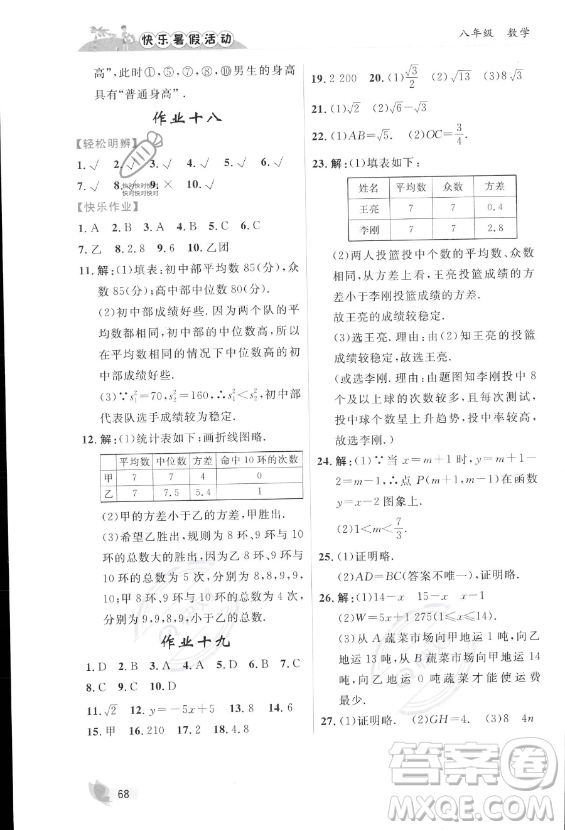 快乐暑假活动
八年级 数学
高”,此时①,⑤,⑥,⑩男生的身高
具有“普通身高”.
作业十八
【轻松明辨】
1. √ 2. √ 3. √ 4. √ 5. √ 6. √
7. √ 8. √ 9. × 10. √
【快乐作业】
1. A 2. B 3. A 4. C 5. D 6. C
7. 乙 8. 2 9. 6 10. 乙团
11. 解:(1)填表:初中部平均数 85(分),众
数 85(分);高中部中位数 80(分).
(2)初中部成绩好些. 因为两个队的平
均数都相同,初中部的中位数高,所以
在平均数相同的情况下中位数高的
初中部成绩好些.
(3)∵s₁²=70,s₂²=160,∴初中部
代表队选手成绩较为稳定.
12. 解:(1)统计表如下:画折线图略.
平均数 中位数 方差 命中 10 环的次数
甲 7 7 4 0
乙 7 7.5 5.4 1
(2)甲的方差小于乙的方差,甲胜出.
(3)希望乙胜出,规则为 9 环与 10 环
的总数大的胜出. 因为乙 9 环与 10 环
的总数为 3 环. 或因为乙 8 环、9 环与
10 环的总数大于甲 8 环、9 环与 10 环
的总数,分别为 8,9,8,9,10,5 次,甲
分别为 9,9,8,9,4 次,故乙胜出.
作业十九
1. D 2. B 3. C 4. D 5. A 6. D
7. C 8. B 9. A 10. D
11. √2 12. y=-5x+5 13. 乙 14. 3
15. 甲 16. 210 17. 2 18. 4.8
68
19. 2 200 20. (1)√3/2 (2)√13 (3)√5
21. (1)√2 (2)√6-1 (3)9
22. (1)AB=√5. (2)OC=3/4.
23. 解:(1)填表如下:
姓名 平均数 众数 方差
王亮 7 7 0.4
李刚 7 7 2.8
(2)两人投篮投中个数的平均数、众数
相同,从方差上看,王亮投篮成绩的方
差小于李刚投篮成绩的方差.
故王亮的成绩较稳定.
(3)选王亮. 理由:由(2)知王亮的投篮
成绩较稳定,故选王亮.
(或选李刚. 理由:由题图知李刚投中 8
个及以上球的次数较多,最后一次测试
成绩呈上升趋势,投中率较高,
故选李刚.)
24. 解:(1)∵当 x=m+1 时,y=m+
1-2=m-1,∴点 P(m+1,m-1)在
函数图象上.
(2)1<m<7/3.
25. (1)证明略.
(2)AD=BC(答案不唯一),证明略.
26. 解:(1)14-x 15-x x-1
(2)W=5x+1 275(1≤x≤14).
(3)从 A 蔬菜市场向甲地运 1 吨,向乙
地运 13 吨,从 B 蔬菜市场向甲地运 14
吨,向乙地运 0 吨才能使运
费最少.
27. (1)证明略. (2)GH=4. (3)8 4n
答案圈
MXQE.COM